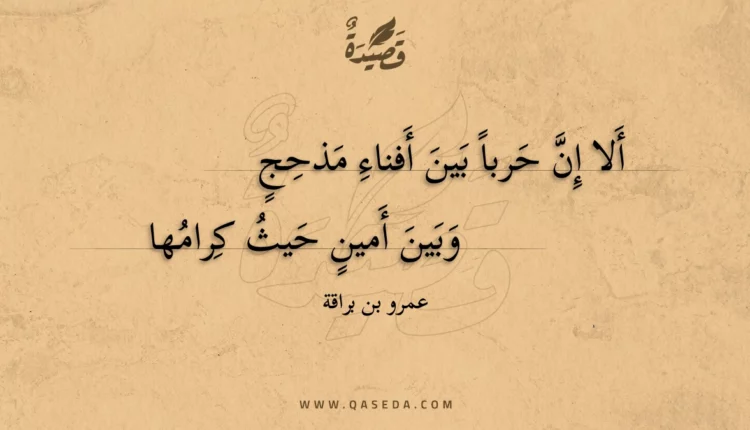 قَصِيدَةٌ
أَلا إِنَّ حَرباً بَينَ أَفناءِ مَذحِجٍ
وَبَينَ أَمينٍ حَيثُ كِرامُها
عمرو بن براقة
WWW.QASEDA.COM